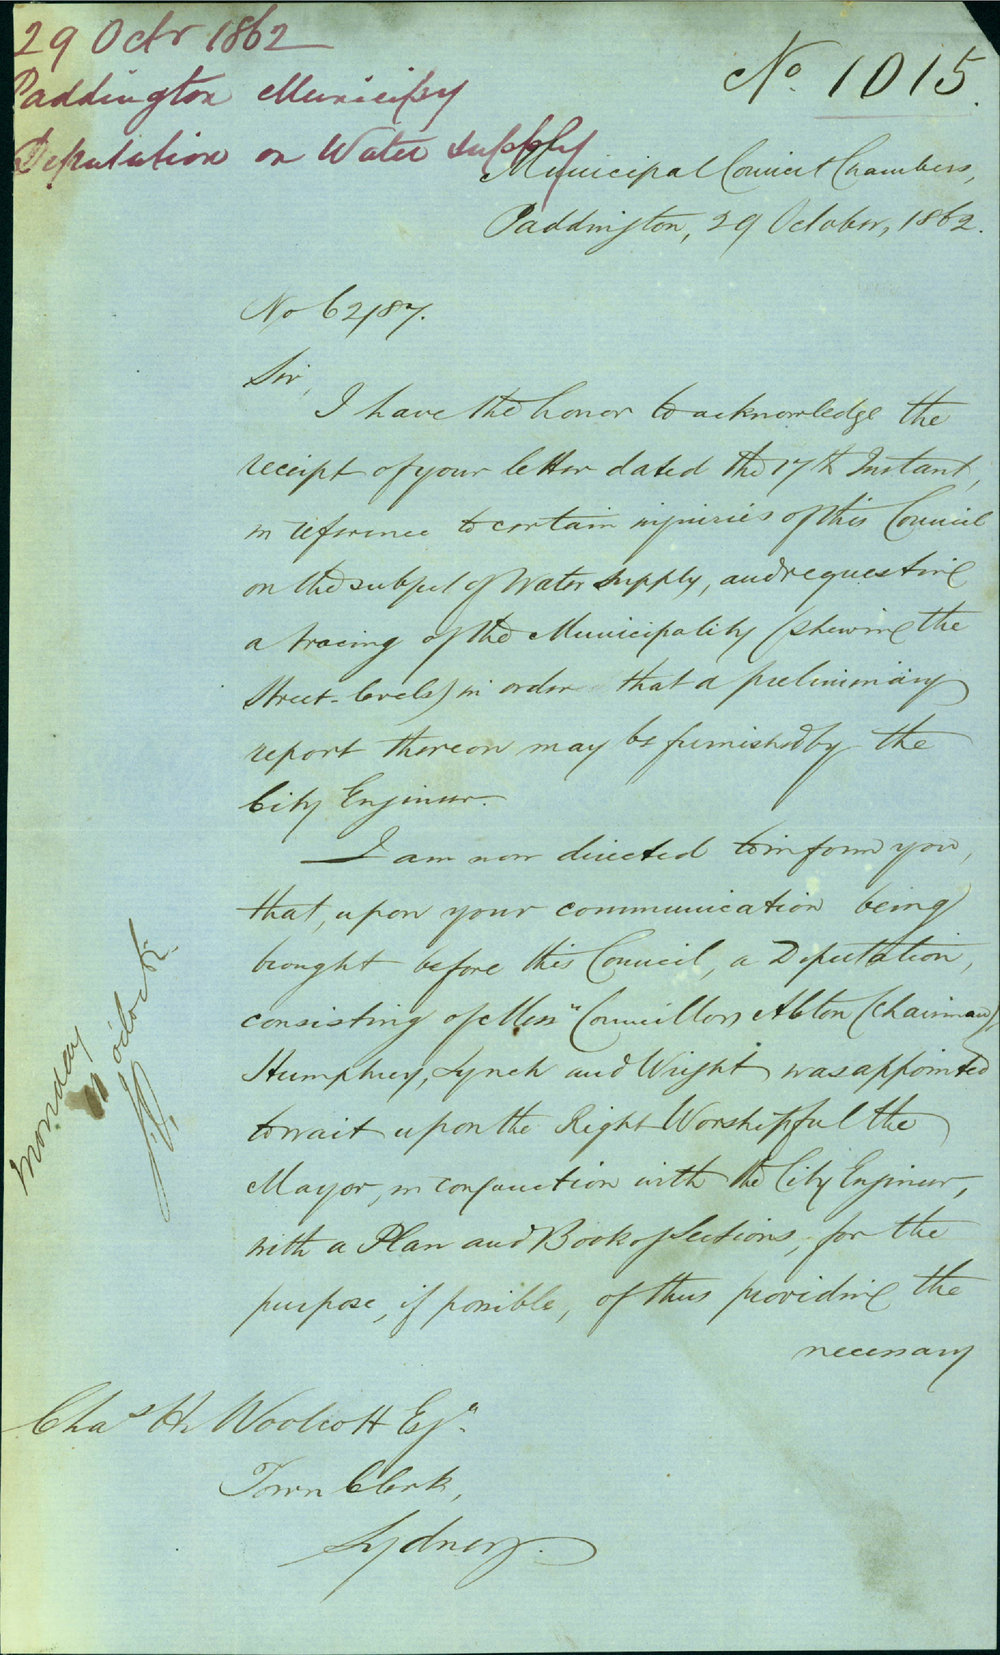 29 Octr 1862
Paddington Municipy
Deputation on Water Supply
No. 1015.
Municipal Council Chambers,
Paddington, 29 October, 1862.
No 62/87.
Sir,
I have the honor to acknowledge the
receipt of your letter dated the 17th Instant,
in reference to certain inquiries of this Council
on the subject of Water Supply, and requesting
a tracing of the Municipality (shewing the
Street-levels) in order that a preliminary
report thereon may be furnished by the
City Engineer.
I am now directed to inform you,
that, upon your communication being
brought before this Council, a Deputation,
consisting of Messrs Councillors Alston (Chairman)
Humphrey, Lynch and Wright was appointed
to wait upon the Right Worshipful the
Mayor, in conjunction with the City Engineer,
with a Plan and Book of Sections, for the
purpose, if possible, of thus providing the
necessary
Monday
11 o'clock.
Chas H. Woolcott Esqr.
Town Clerk,
Sydney.